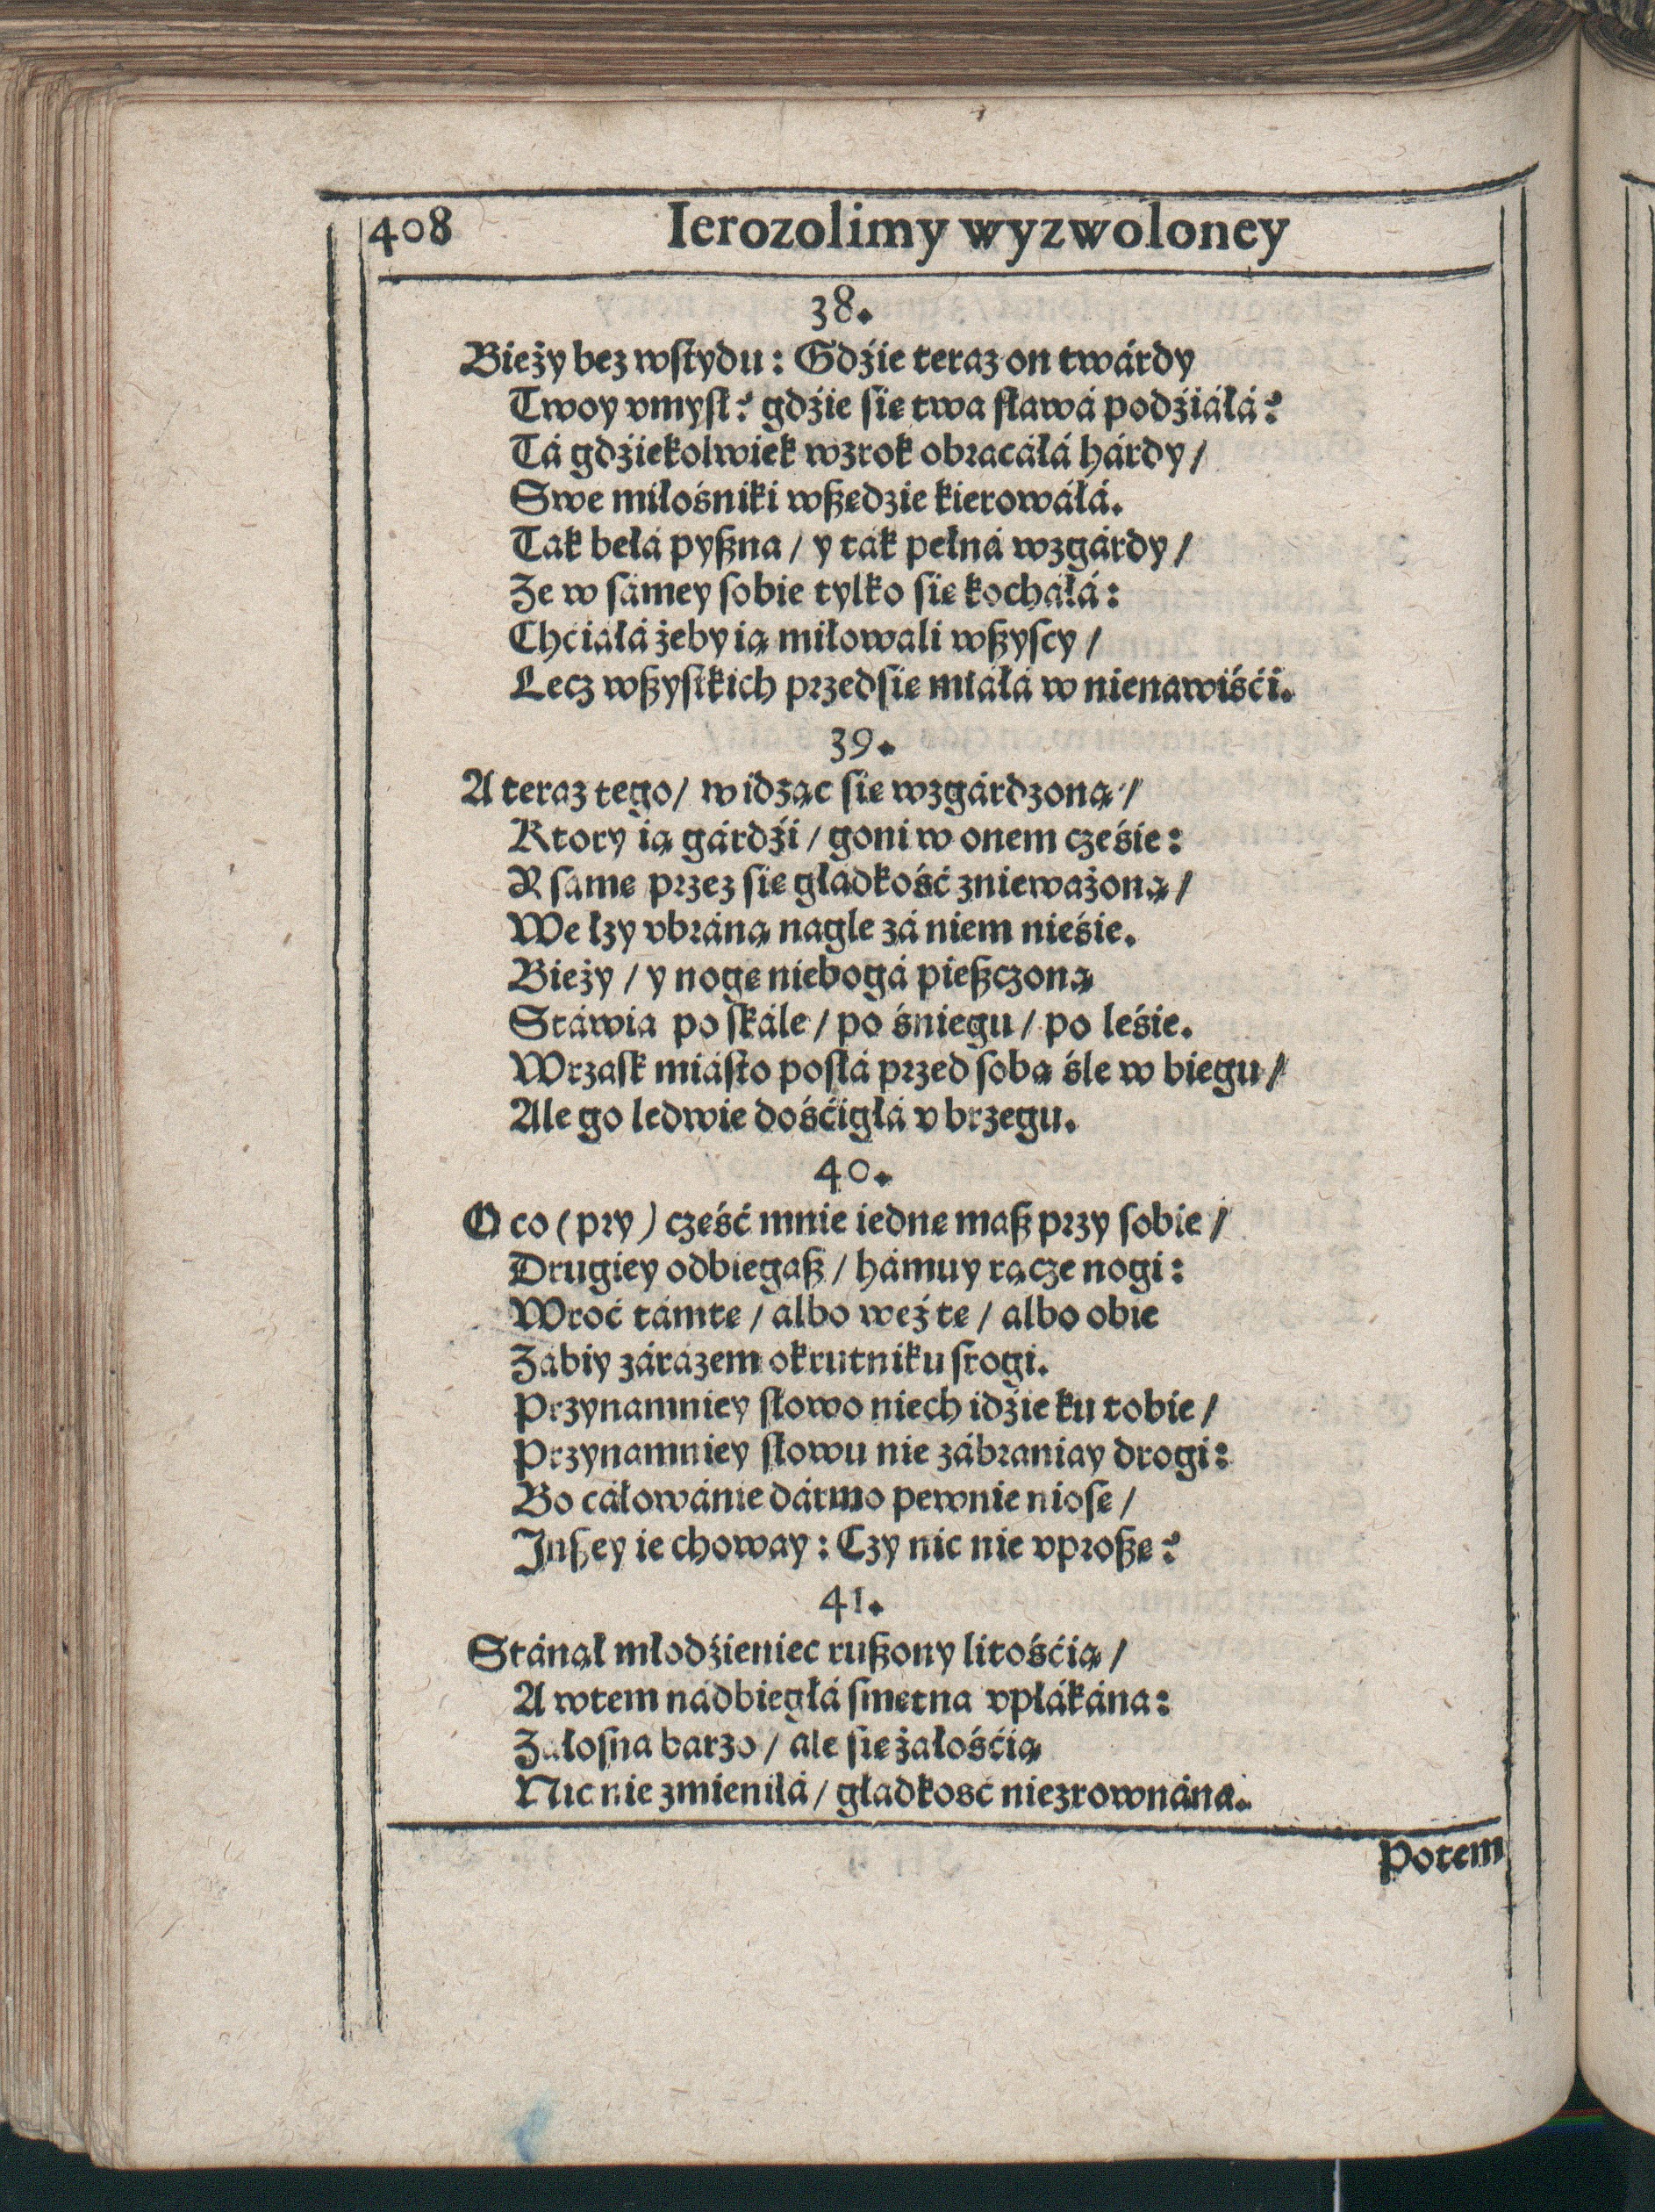 408 Ierozolimy wyzwoloney
38.
Bieży bez wſtydu: Gdźie teraz on twárdy
Twoy vmyſł? gdźie ſię twa ſławá podźiáłá?
Tá gdźiekolwiek wzrok obracáłá hárdy/
Swe miłośniki wßędzie kierowáłá.
Tak bełá pyßna/ y ták pełná wzgárdy/
Ze w sámey ſobie tylko ſię kocháłá:
Chćiáłá żeby ią miłowali wßyſcy/
Lecz wßyſtkich przedſię miáłá w nienawiśći.
39.
A teraz tego/ widząc ſię wzgárdzoną/
Ktory ią gárdźi/ goni w onem cześie:
R ſamę przez ſię głádkość znieważoną/
We łzy vbráną nagle zá niem nieśie.
Bieży/ y nogę niebogá pießczoną
Stáwia po ſkále/ po śniegu/ po leśie.
Wrzaſk miáſto poſłá przed ſobą śle w biegu/
Ale go ledwie dośćigłá v brzegu.
40.
O co (pry) cześć mnie iednę maß przy ſobie/
Drugiey odbiegaß/ hámuy rącze nogi:
Wroć támtę/ albo weź tę/ albo obie
Zábiy zárázem okrutniku ſrogi.
Przynamniey ſłowo niech idźie ku tobie/
Przynamniey ſłowu nie zábraniay drogi:
Bo cáłowánie dármo pewnie nioſę/
Inßey ie choway: Czy nic nie vproßę?
41.
Stánął młodźieniec rußony litośćią/
A wtem nádbiegłá ſmętna vpłákána:
Załoſna barzo/ ale ſię żałośćią
Nic nie zmieniłá/ głádkość niezrownána.
Potem